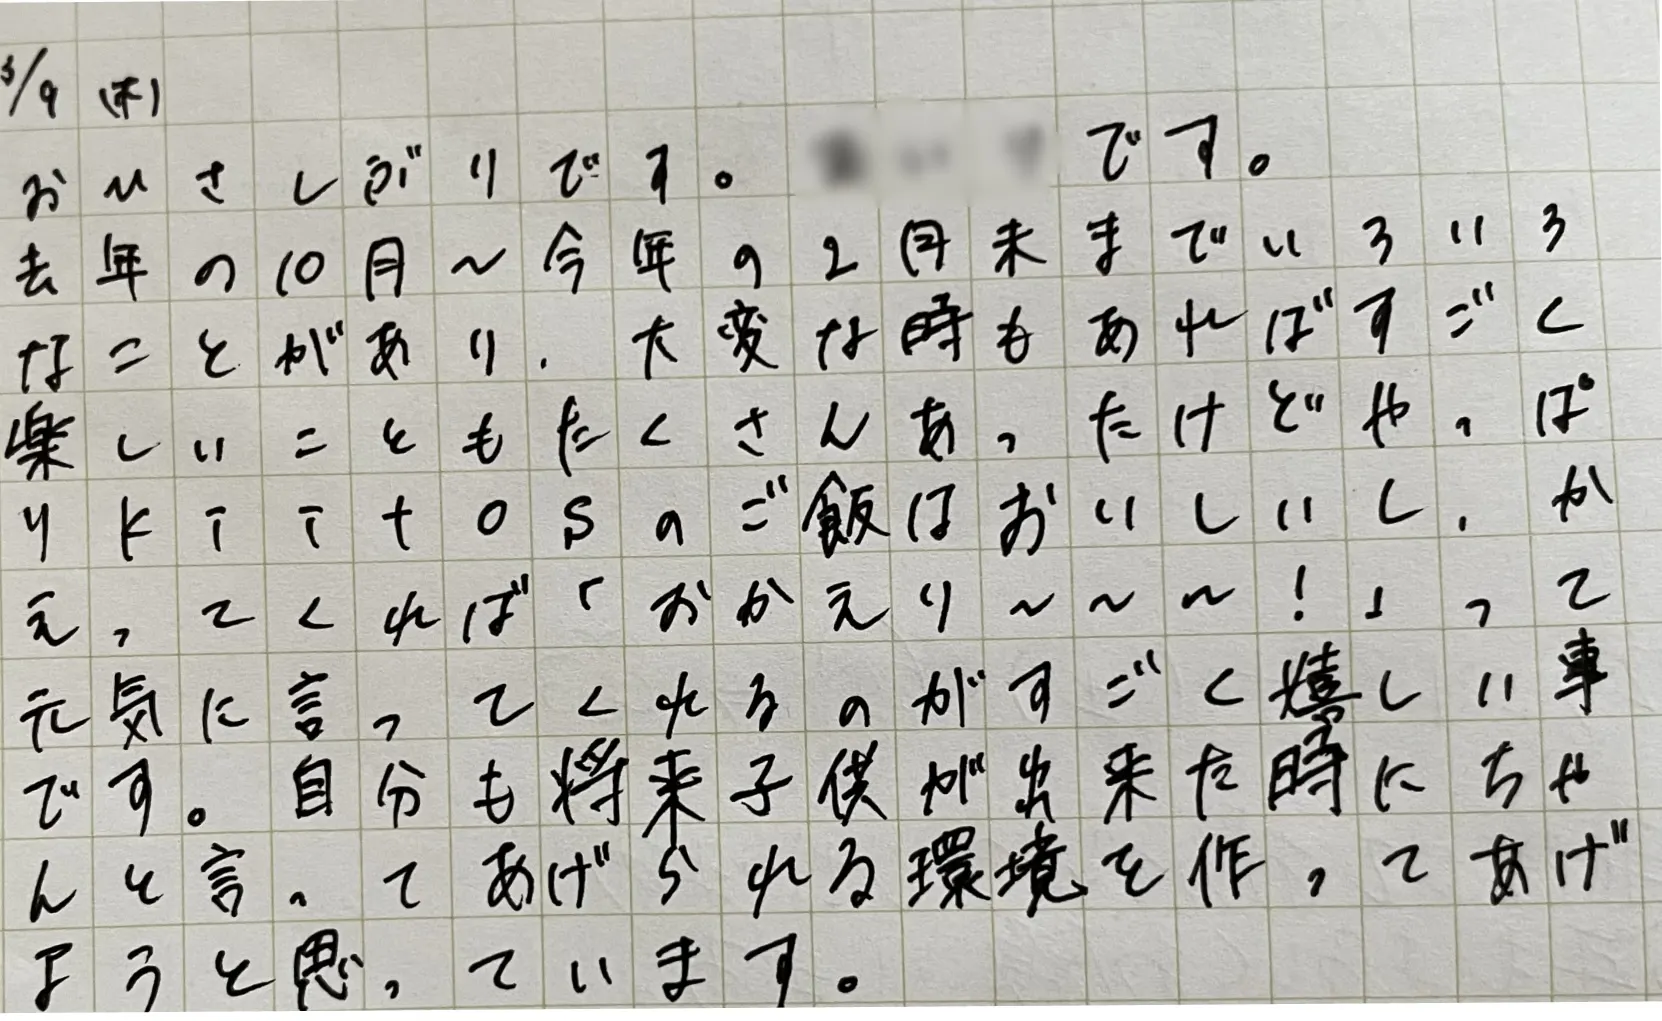 3/9 (木)
おひさしぶりです。です。
去年の10月〜今年の2月末までいろいろ
なことがあり、大変な時もあればすごく
楽しいこともたくさんあったけどやっぱ
りkiitosのご飯はおいしいし、か
えってくれば「おかえり〜〜〜!」って
元気に言ってくれるのがすごく嬉しい事
です。自分も将来子供が出来た時にちゃ
んと言ってあげられる環境を作ってあげ
ようと思っています。